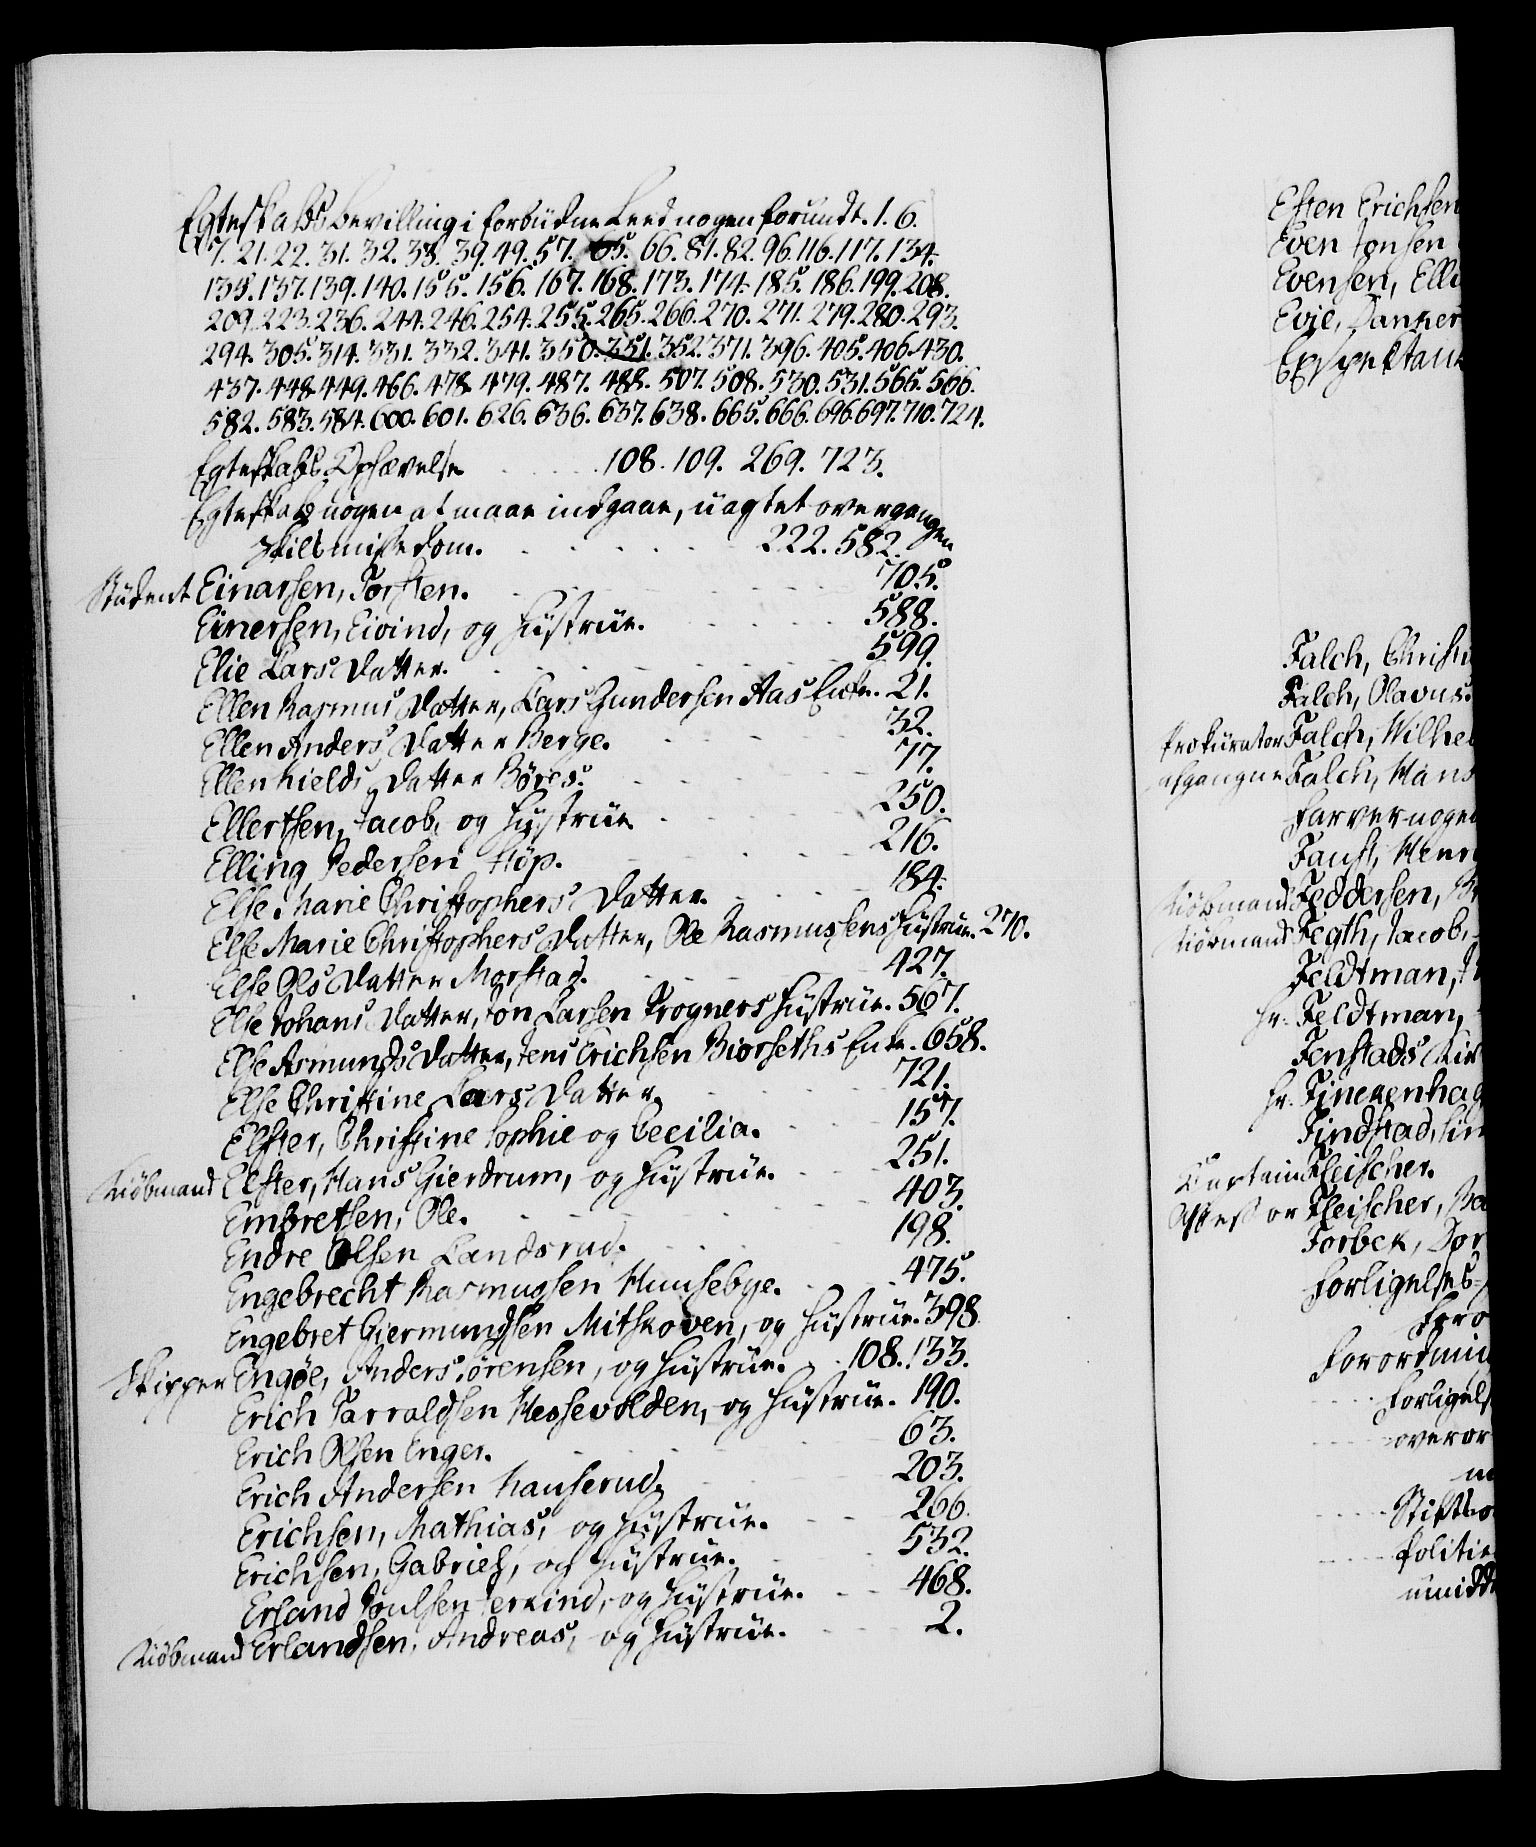 Egteskabs bevilling i forbüdne Leed nogen forundt. 1. 6.
7. 21. 22. 31. 32. 38. 39. 49. 57. 65. 66. 81. 82. 96. 116. 117. 134.
135. 137. 139. 140. 155. 156. 167. 168. 173. 174. 185. 186. 199. 208.
209. 223. 236. 244. 246. 254. 255. 265. 266. 270. 271. 279. 280. 293.
294. 305. 314. 331. 332. 341. 350. 351. 352. 371. 396. 405. 406. 430.
437. 448. 449. 466. 478. 479. 487. 488. 507. 508. 530. 531. 565. 566.
582. 583. 584. 600. 601. 626. 636. 637. 638. 665. 666. 696. 697. 710. 724.
Egteskabs Ophævelse 108. 109. 269. 723.
Egteskab nogen at maae indgaae, uagtet overgangen
Skilsmissedom. 222. 582.
Student Einarsen, Torsten. 705.
Einersen, Eivind, og Hüstrüe. 588.
Elie Lars Datter. 599.
Ellen Rasmus Datter, Lars Gundersen Aas Enke. 21.
Ellen Anders Datter Berge. 32.
Ellen Kields Datter Böres. 77.
Ellertsen, Jacob, og Hüstrüe 250.
Elling Pedersen Höp. 216.
Else Marie Christophers Datter. 184.
Else Marie Christophers Datter, Ole Rasmussens Hüstrüe. 270.
Else Ols Datter Morstad. 427.
Else Johans Datter, Jon Larsen Trogners Hüstrüe. 567.
Else Asmunds Datter, Jens Erichsen Biorseths Enke. 658.
Else Christine Lars Datter. 721.
Elster, Christine Sophie og Cecilia. 157.
Kiöbmand Elster, Hans Gierdrum, og Hüstrüe. 251.
Embretsen, Ole. 403.
Endre Olsen Landsrud. 198.
Engebrecht Rasmussen Huusebye. 475.
Engebret Giermundsen Mitskoven, og Hüstrüe. 398.
Skipper Engöe, Anders Sörensen, og Hüstrüe. 108. 133.
Erich Tarraldsen Hessevolden, og Hüstrüe. 190.
Erich Olsen Enger. 63.
Erich Andersen Hauserud. 203.
Erichsen, Mathias, og Hüstrüe. 266.
Erichsen, Gabriel, og Hüstrüe. 532.
Erland Poulsen, og Hüstrüe. 468.
Kiöbmand Erlandsen, Andreas, og Hüstrüe. 2.
Esten Erichsen
Even Jonsen
Evensen, Elli
Evie, Danker
Expectan
Falch, Christi
Falch, Olavus.
Prokurator Falch, Wilhel
afgangne Falch, Hans
Farver nogen
Faust, Henr
Kiöbmand Feddersen, 
Kiöbmand Fegth, Jacob,
Feldtman,
Hr. Feldtman,
Fenstads Kir
Hr. Finckenhag
Findstad,
Captain Fleischer.
Assessor Fleischer, Ba
Forbek, Dor
Forligelses-
Foro
Forordnin
Forligels
overor
Stifts
Politie
umidd